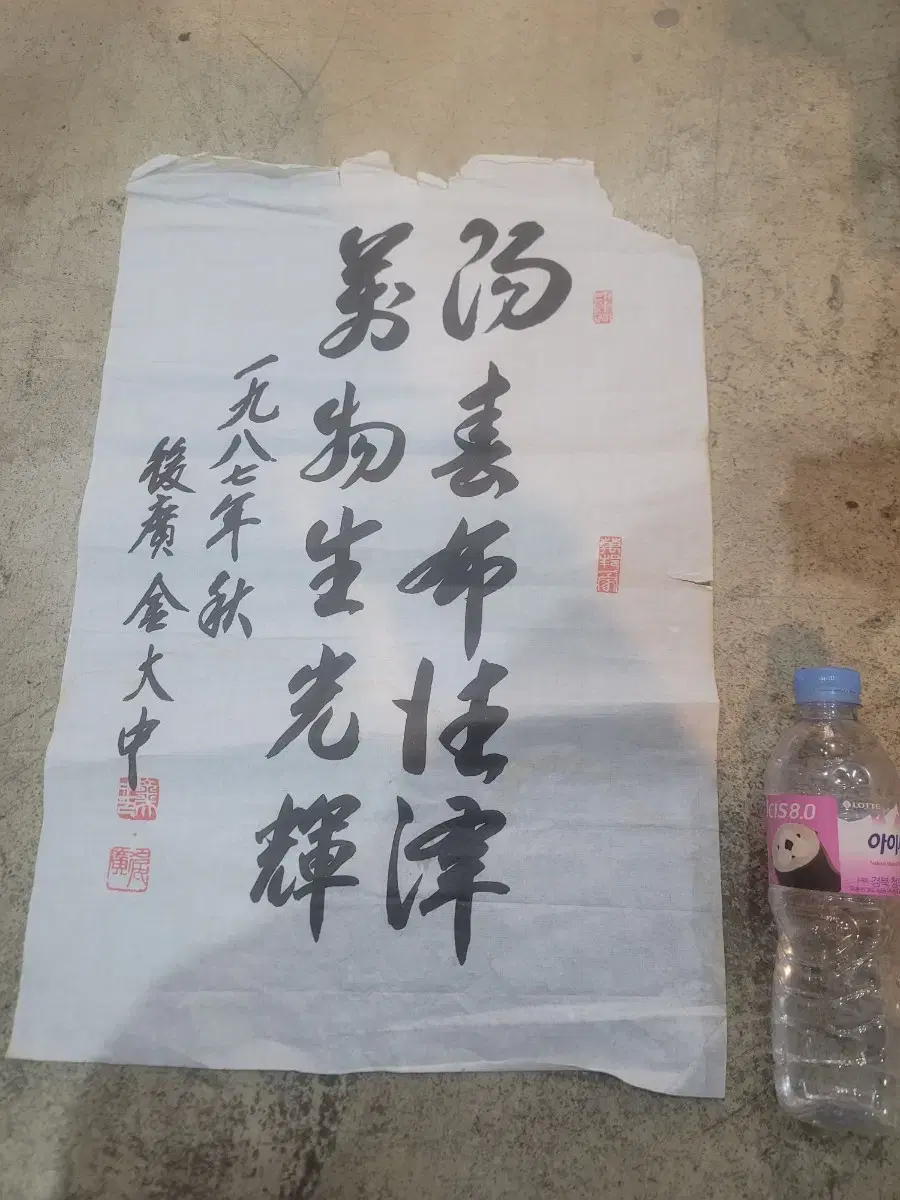 陽春布德澤
萬物生光輝
一九八七年秋
後廣金大中
CIS8.0
LOTTE
아이